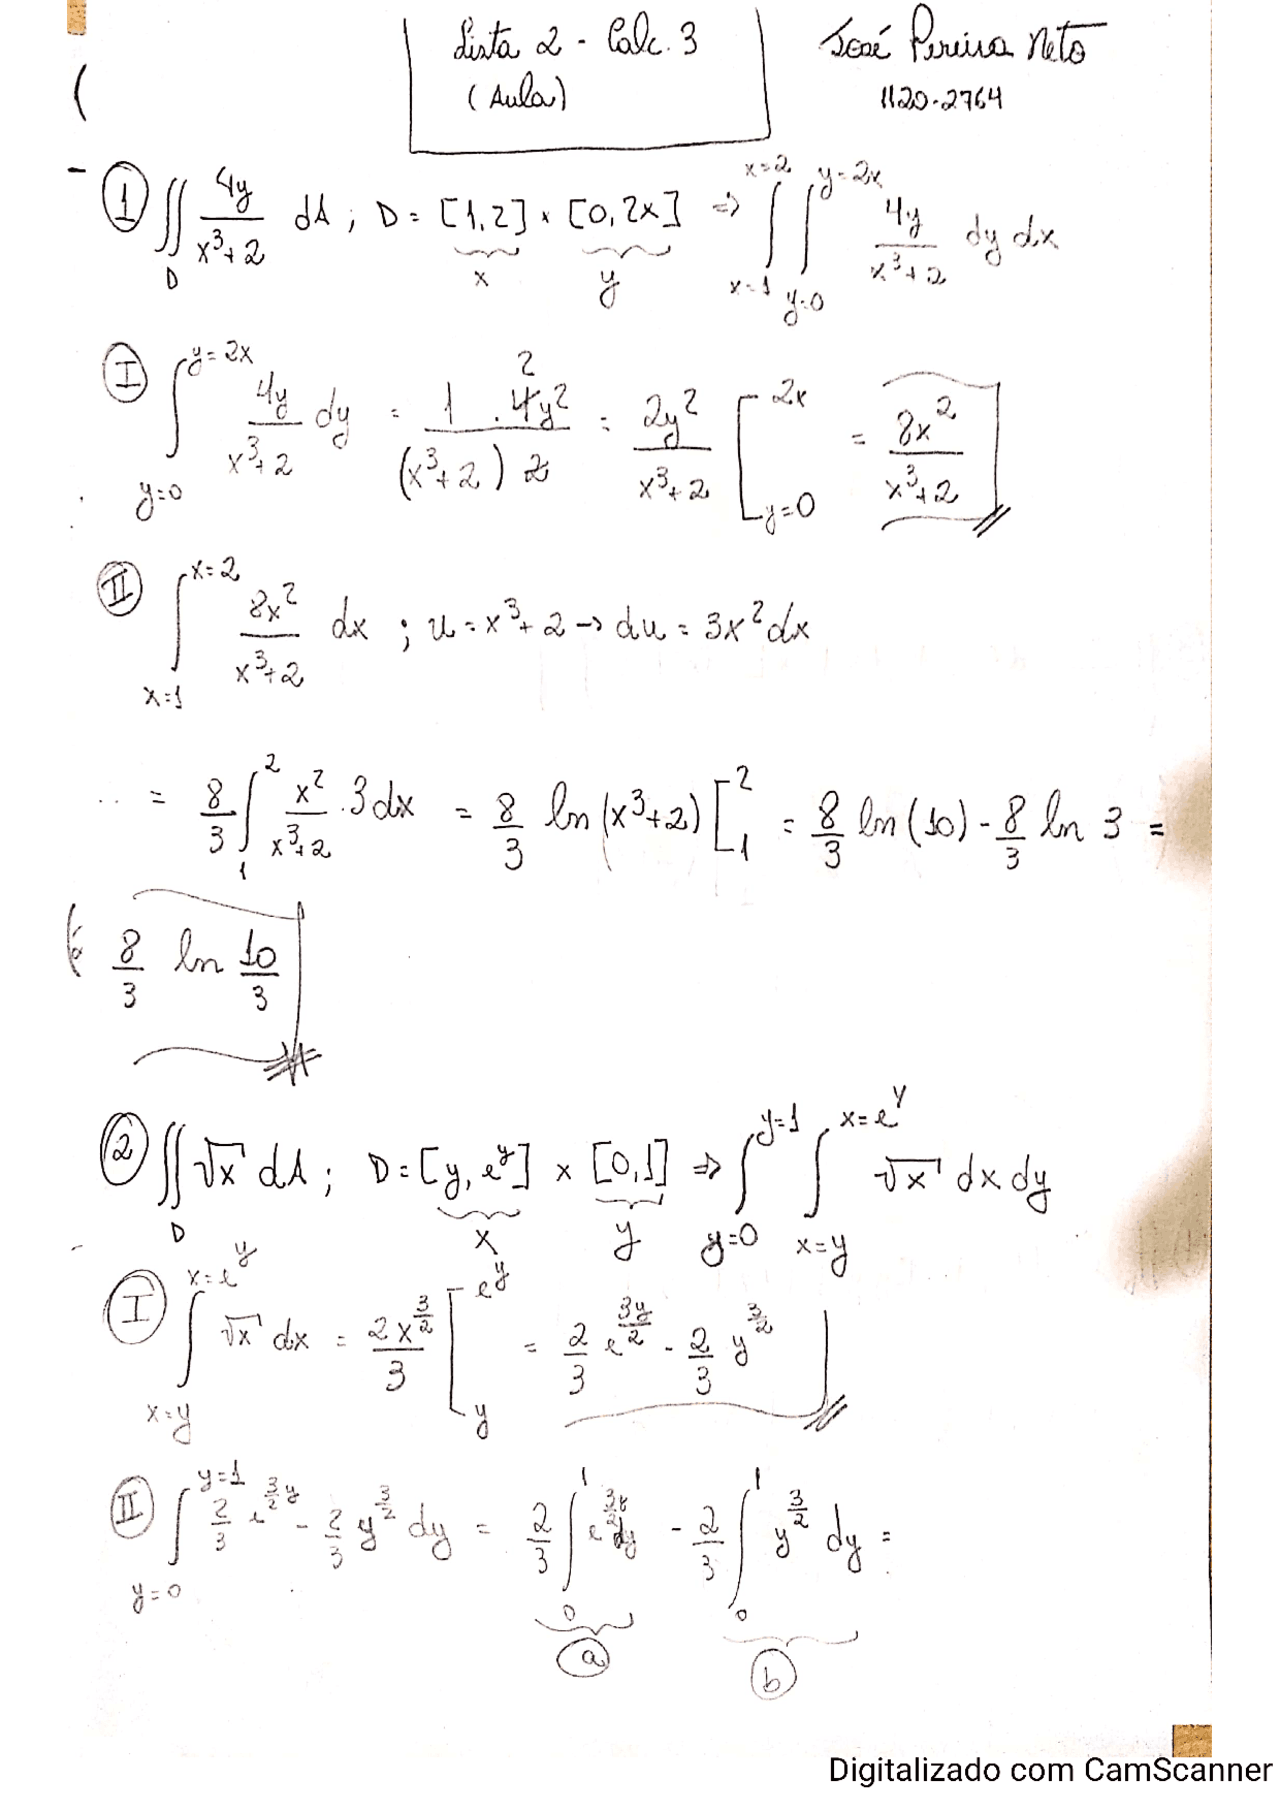 Lista 2 - Calc. 3
(Aula)
José Pereira Neto
1120-2764
① ∬_D 4y/(x³+2) dA ; D = [1,2] × [0,2x] ⇒ ∫_{x=1}^{x=2} ∫_{y=0}^{y=2x} 4y/(x³+2) dy dx
x y
Ⓘ ∫_{y=0}^{y=2x} 4y/(x³+2) dy = 1/(x³+2) . 4y²/2 2 = 2y²/(x³+2) [_{y=0}^{2x} = 8x²/(x³+2)
Ⓘ︎Ⓘ ∫_{x=1}^{x=2} 8x²/(x³+2) dx ; u = x³+2 → du = 3x²dx
... = 8/3 ∫_1^2 x²/(x³+2) . 3dx = 8/3 ln(x³+2) [_1^2 = 8/3 ln(10) - 8/3 ln 3 =
8/3 ln 10/3
② ∬_D √x dA ; D = [y, e^y] × [0,1] ⇒ ∫_{y=0}^{y=1} ∫_{x=y}^{x=e^y} √x dx dy
x y
Ⓘ ∫_{x=y}^{x=e^y} √x dx = 2x^{3/2}/3 [_y^{e^y} = 2/3 e^{3y/2} - 2/3 y^{3/2}
Ⓘ︎Ⓘ ∫_{y=0}^{y=1} 2/3 e^{3/2 y} - 2/3 y^{3/2} dy = 2/3 ∫_0^1 e^{3/2 y} dy - 2/3 ∫_0^1 y^{3/2} dy =
ⓐ ⓑ
Digitalizado com CamScanner